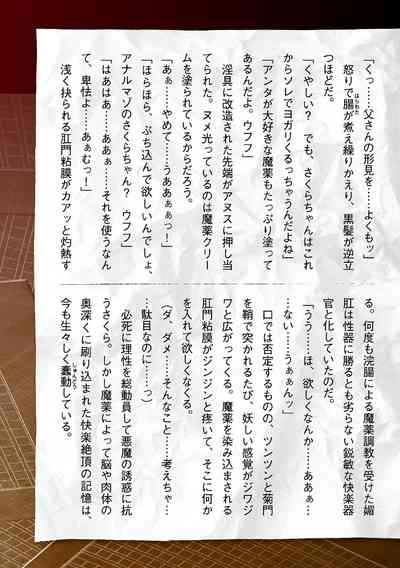 「くっ……父さんの形見を……よくもッ」
怒りで腸が煮え繰りかえり、黒髪が逆立
はらわた
つほどだ。
「くやしい？　でも、さくらちゃんはこれ
からソレでヨガリくるっちゃうんだよね」
「アンタが大好きな魔薬もたっぷり塗って
あるんだよ。ウフフ」
淫具に改造された先端がアヌスに押し当
てられた。ヌメ光っているのは魔薬クリー
ムを塗られているからだろう。
「あぁ……やめて……うああぁぁっ！」
「ほらほら、ぶち込んで欲しいんでしょ、
アナルマゾのさくらちゃん？　ウフフ」
「はあはあ……ああぁ……それを使うなん
て、卑怯よ……あぁむっ！」
浅く抉られる肛門粘膜がカアッと灼熱す
る。何度も浣腸による魔薬調教を受けた媚
肛は性器に勝るとも劣らない鋭敏な快楽器
官と化していたのだ。
「うう……ほ、欲しくなんか……ああぁ…
…ない……うぁぁんッ」
口では否定するものの、ツンツンと菊門
を鞘で突かれるたび、妖しい感覚がジワジ
ワと広がってくる。魔薬を染み込まされる
肛門粘膜がジンジンと疼いて、そこに何か
を入れて欲しくなくなる。
（ダ、ダメ……そんなこと……考えちゃ…
…駄目なのに……っ）
必死に理性を総動員して悪魔の誘惑に抗
うさくら。しかし魔薬によって脳や肉体の
奥深くに刷り込まれた快楽絶頂の記憶は、
今も生々しく蠢動している。
しゅんどう